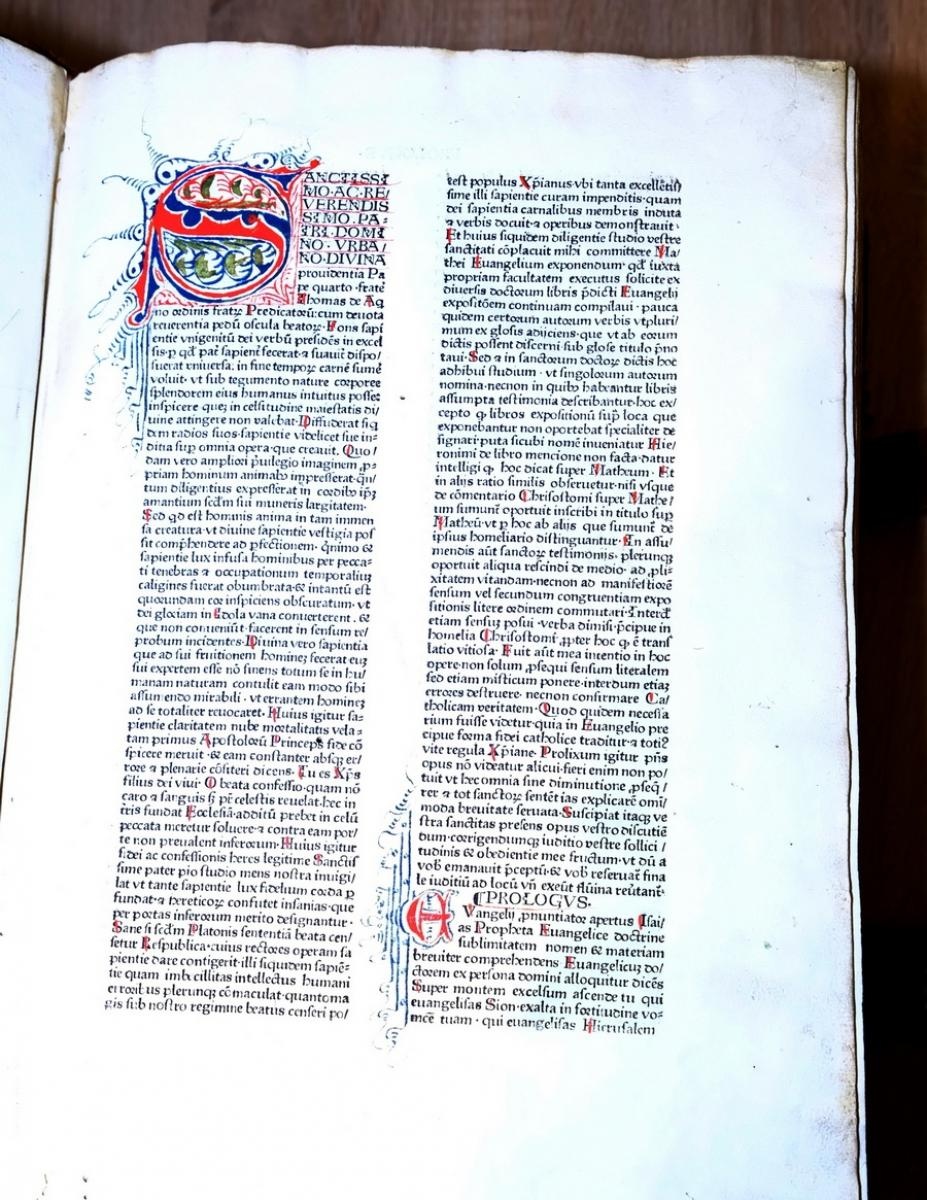 SANCTISSI
MO·AC·RE/
VERENDIS
SIMO·PA/
TRI·DOMI
NO·VRBA/
NO·DIVINA
prouidentia Pa
pe quarto·frater̄
Thomas de Aq̄
no ordinis fratꝝ Predicatoꝝ:cum deuota
reuerentia pedū oscula beatoꝝ·Fons sapi
entie vnigenitū dei verbū presidēs in excel
sis·p qd̄ pat̄ sapient̄ fecerat·⁊ suauit̄ dispo/
suerat vniuersa: in fine tempoꝝ carnē sumē
voluit· vt sub tegumento nature corporee
splendorem eius humanus intuitus posset
inspicere quez in celsitudine maiestatis di/
uine attingere non valebat·Diffuderat siq̄
dem radios suos·sapientie videlicet sue in=
ditia sup omnia opera·que creauit. Quo/
dam vero ampliori p̄uilegio imaginem ꝓ=
priam hominum animabꝰ impresserat·qn̄/
tum diligentius expresserat in coꝛdibꝰ ip̄ꝝ
amantium scd̄m sui muneris largitatem·
Sed qd est hominis anima in tam immen
sa creatura·vt diuine sapientie vestigia pos
sit comphendere ad pfectionem· q̄nimo &
sapientie lux infusa hominibus per pecca=
ti tenebras ⁊ occupationum temporaliuꝫ
caligines fuerat obumbrata·& intantū est
quoꝛundam coꝛ insipiens obscuratum· vt
dei gloꝛiam in Idola vana conuerterent . &
que non conueniūt·facerent in sensum re/
probum incidentes·Diuina vero sapientia
que ad sui fruitionem hominez fecerat eus
sui expertem esse nō sinens totum se in hu/
manam naturam contulit eam modo sibi
assumendo mirabili · vt errantem hominez
ad se totaliter reuocaret·Huius igitur sa=
pientie claritatem nube moꝛtalitatis vela=
tam primus Apostoloꝝ Princeps fide cō
spicere meruit ·& eam constanter absqꝫ er/
roꝛe ⁊ plenarie cōfiteri dicens· Tu es Xp̄s
filius dei viui· O beata confessio·quam nō
caro ⁊ sanguis sꝫ pr̄ celestis reuelat·hec in
terris fundat Ecclesiā·additū prebet in celū
peccata meretur soluere·⁊ contra eam poꝛ/
te non preualent inferoꝝum·Huius igitur
fidei ac confessionis heres legitime Sanctis
sime pater pio studio mens nostra inuigi/
lat vt tante sapientie lux fidelium coꝛda p
fundat·⁊ hereticoꝝ confutet insanias·que
per poꝛtas inferoꝛum merito designantur·
Sane si scd̄m Platonis sententiā beata cen/
setur Respublica·cuius rectoꝛes operam sa
pientie dare contigerit·illi siquidem sapiē=
tie quam imbecillitas intellectus humani
erroꝛibus plerunqꝫ cōmaculat·quantoma
gis sub nostro regimine beatus censeri po/
test populus Xp̄ianus·vbi tanta excellētis/
sime illi sapientie curam impenditis·quam
dei sapientia carnalibus membris induta
⁊ verbis docuit·⁊ operibus demonstrauit·
Et huius siquidem diligentie studio vestre
sanctitati cōplacuit mihi committere Ma/
thei Euangelium exponendum· qd̄ iuxta
propriam facultatem executus solicite ex
diuersis doctoꝛum libris p̄dicti Euangelij
expositōem continuam compilaui · pauca
quidem certoꝛum autoꝛum verbis vtpluri/
mum ex glosis adijciens·que vt ab eoꝛum
dictis possent discerni sub glose titulo p̄no
taui·Sed ⁊ in sanctoꝛum doctoꝝ dictis hoc
adhibui studium · vt singuloꝛum autoꝛum
nomina·necnon in quibꝰ habeantur libris
assumpta testimonia describantur·hoc ex/
cepto ꝙ libros expositionū sup loca que
exponebantur non oportebat specialiter de
signari·puta sicubi nomē inueniatur Hie/
ronimi de libro mencione non facta·datur
intelligi ꝙ hoc dicat super Matheum· Et
in alijs ratio similis obseruetur·nisi vsque
de cōmentario Chrisostomi super Mathe/
um sumunt̄ oportuit inscribi in titulo sup
Matheū·vt p hoc ab alijs que sumunt̄ de
ipsius homeliario distinguantur·In assu/
mendis aūt sanctoꝝ testimonijs· plerunqꝫ
oportuit aliqua rescindi de medio· ad ꝓli=
xitatem vitandam·necnon ad manifestioꝛē
sensum vel secundum congruentiam expo
sitionis litere oꝛdinem commutari·Interdū
etiam sensuꝫ posui · verba dimisi·p̄cipue in
homelia Chrisostomi ꝓpter hoc ꝙ ē trans
latio vitiosa· Fuit aūt mea intentio in hoc
opere·non solum ꝓsequi sensum literalem
sed etiam misticum ponere·interdum etiaꝫ
erroꝛes destruere· necnon confirmare Ca/
tholicam veritatem· Quod quidem necessa
rium fuisse videtur·quia in Euangelio pre
cipue foꝛma fidei catholice traditur·⁊ toti⁹
vite regula Xp̄iane· Prolixum igitur pn̄s
opus nō videatur alicui·fieri enim non po/
tuit vt hec omnia sine diminutione ꝓseq̄/
rer ⁊ tot sanctoꝝ sentētias explicarē omi/
moda breuitate seruata·Suscipiat itaqꝫ ve
stra sanctitas presens opus vestro discutiē
dum·coꝛrigendumqꝫ iuditio vestre sollici /
tudinis & obedientie mee fructum·vt dū a
vob emanauit p̄ceptū·& vob reseruat̄ fina
le iuditiū ad locū vn̄ exeūt flūina reūtant̄·
PROLOGVS·
EVangelij ꝓnuntiatoꝛ apertus Isai/
as Propheta Euangelice doctrine
sublimitatem nomen & materiam
breuiter comprehendens Euangelicuꝫ do/
ctoꝛem ex persona domini alloquitur dicēs
Super montem excelsum ascende tu qui
euangelisas Sion·exalta in foꝛtitudine vo=
mcē tuam · qui euangelisas Hierusalem